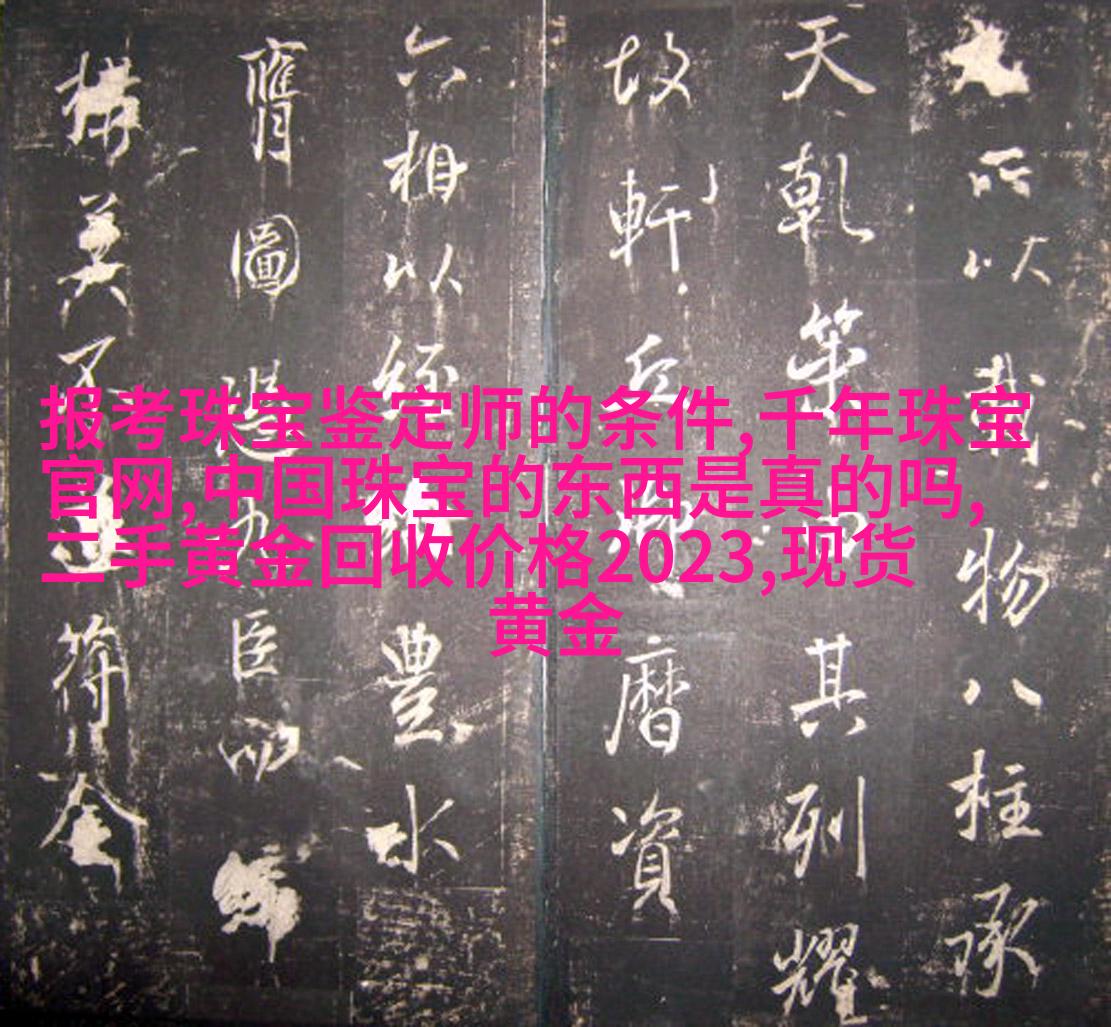 报考珠宝鉴定师的条件,千年珠宝
官网,中国珠宝的东西是真的吗,
二手黄金回收价格2023,现货
黄金
所以載物八柱承
天乾筞其列耀
故軒丘曆資
六相以經豐水
膺圖臣
構美不符奎